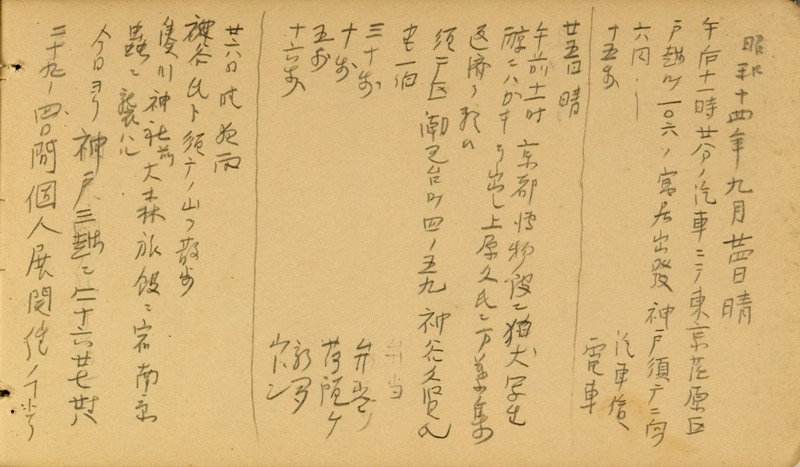 昭和十四年九月廿四日 晴
午后十一時廿分ノ汽車ニテ東京荏原区
戸越町一〇六ノ寓居出發 神戸須广ニ向
六円 汽車賃
十五銭 電車
廿五日 晴
午前十一時 京都博物舘ニ狛犬写生
ハガキヲ出し上原久氏ニ万葉集
返済ノ
須广区潮見台町四ノ五九 神谷
宅一泊
弁当
三十銭 弁当
十銭 荷
五銭 新聞
十六銭
廿六日 時々雨
神谷氏ト須广ノ山ヲ散歩
湊川神社前 大森旅舘ニ宿 南京
蟲ニ襲ハル
今日ヨリ神戸三越ニ二十六 廿七 廿八
二十九ノ四日間個人展開催ノ